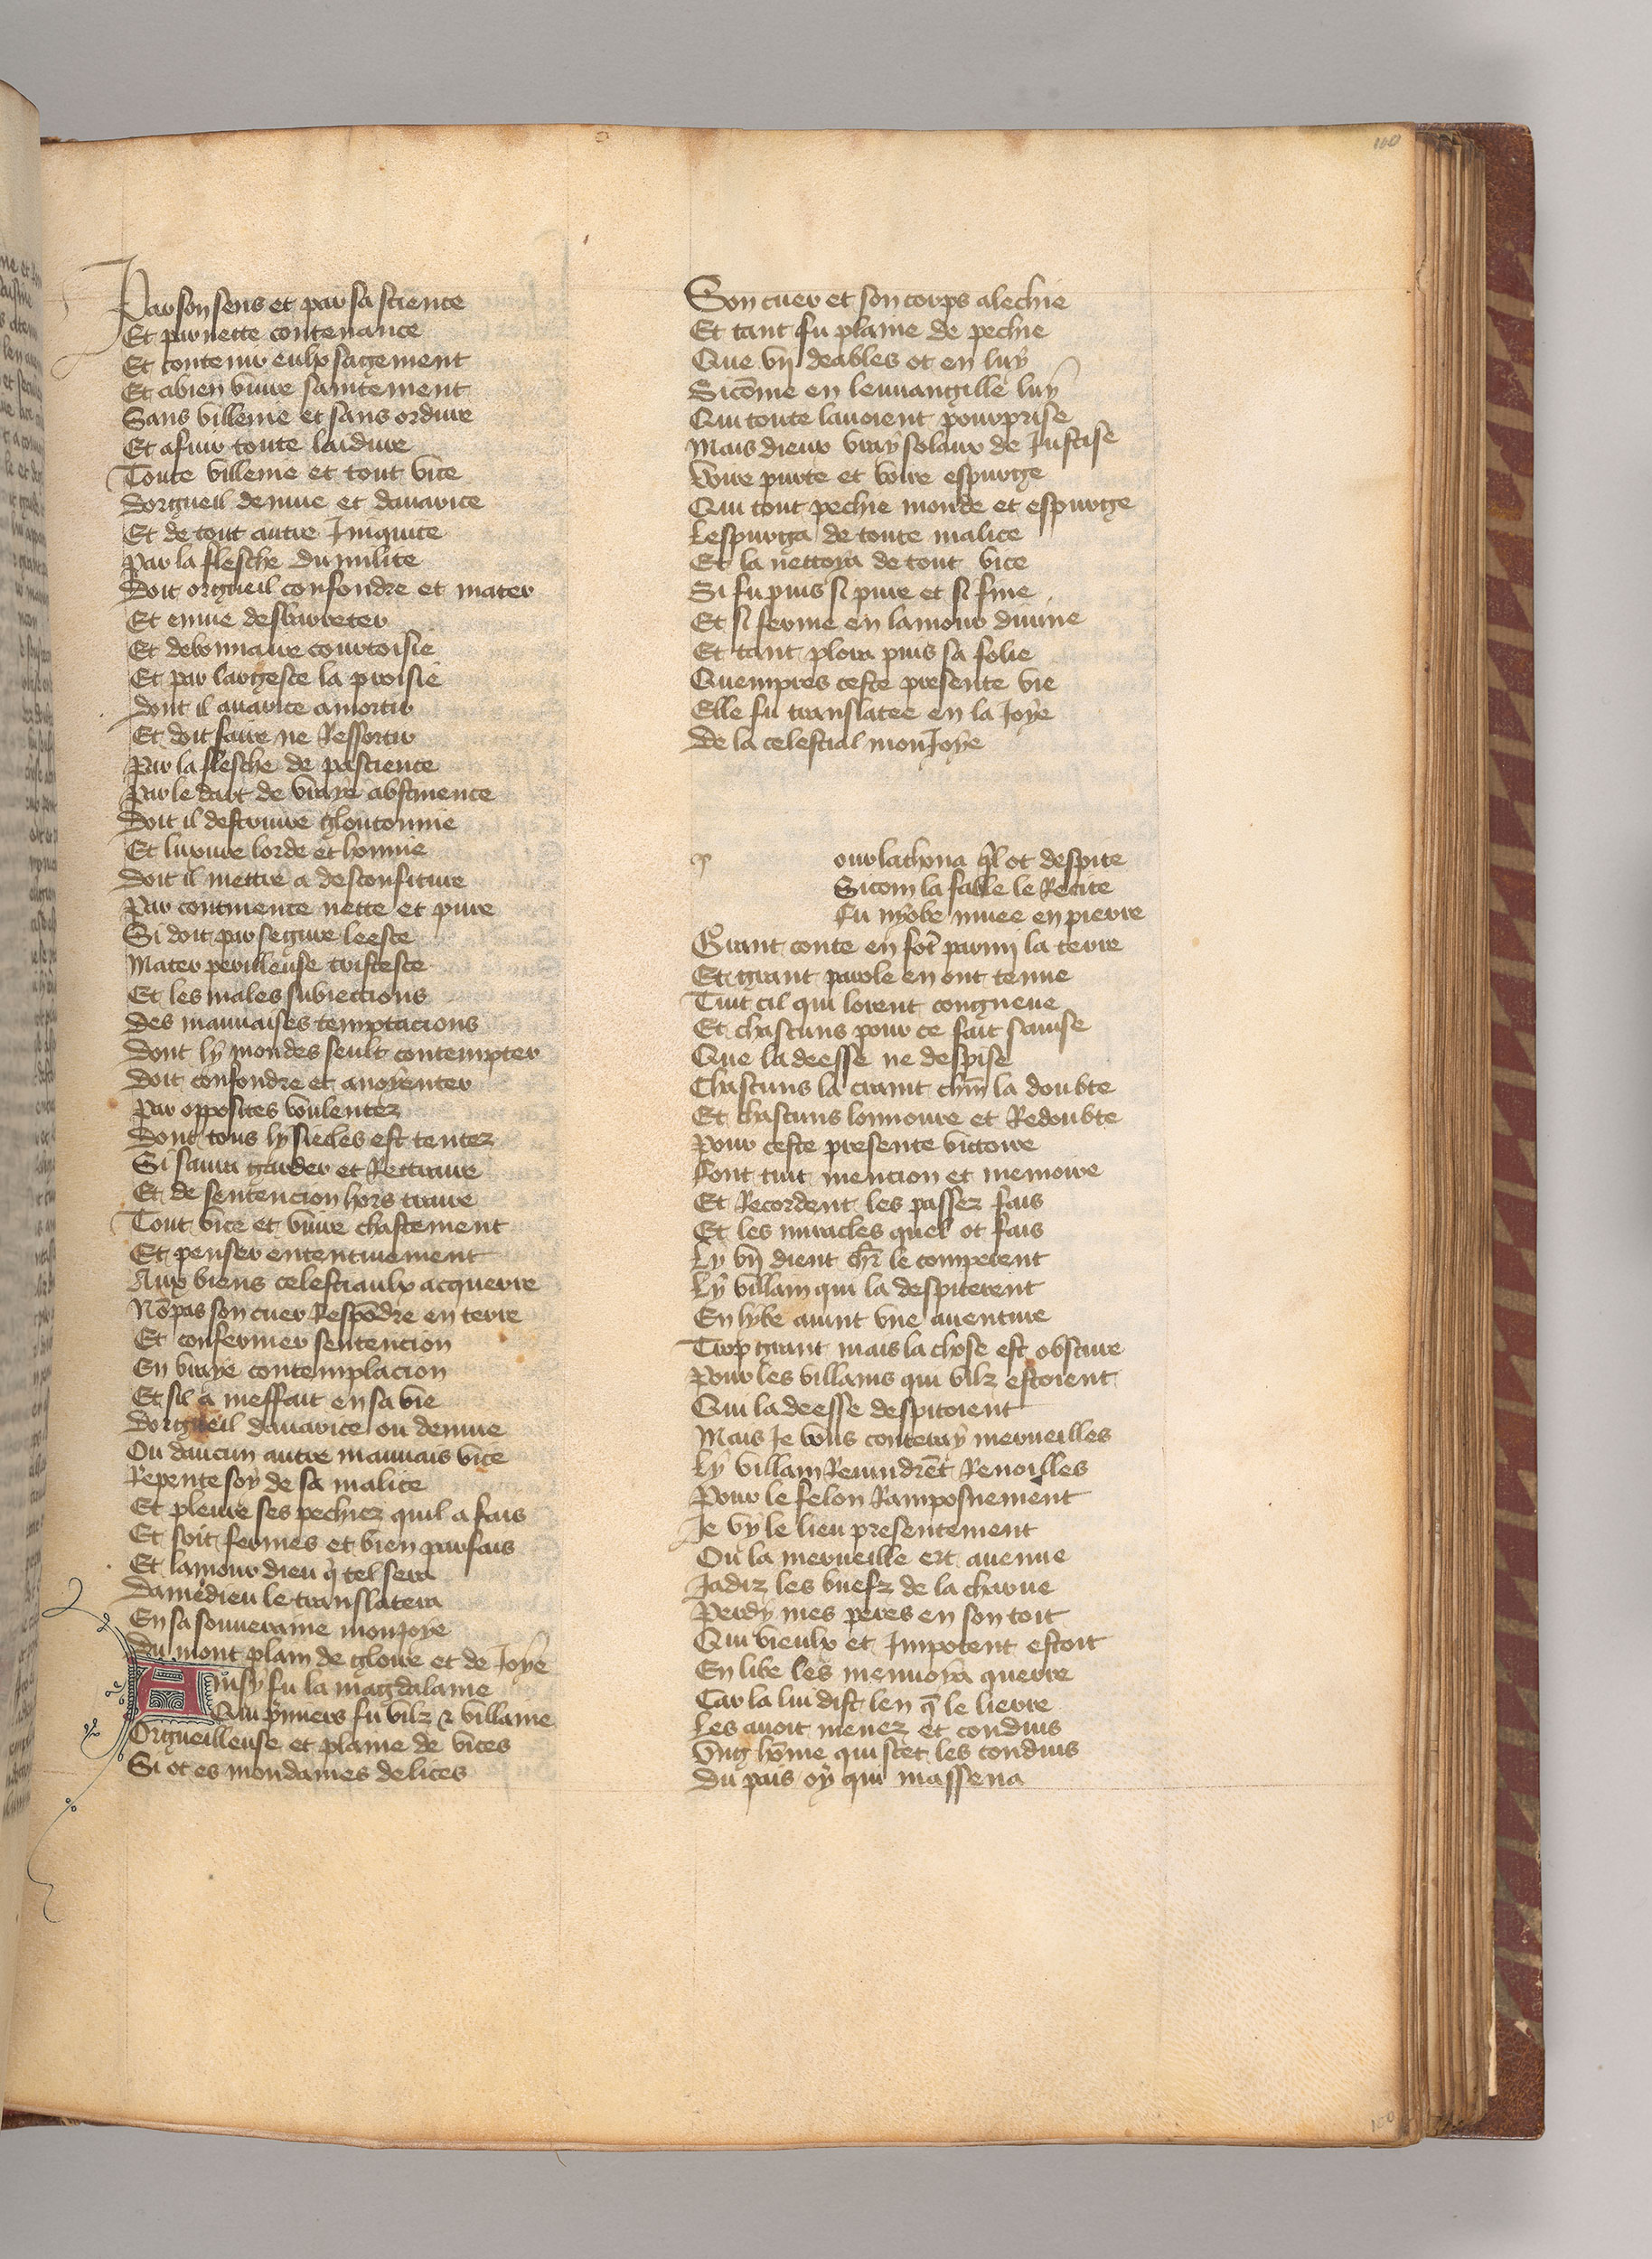 100
Par son sens et par sa science
Et par nette contenance
Et contenir eulx sagement
Et a bien vivre saintement
Sans villenie et sans ordure
Et afuir toute laidure
Toute villenie et tout vice
Dorgueil denvie et davarice
Et de tout autre Iniquite
Par la flesche dumilite
Doit orgueil confondre et mater
Et envie desbareter
Et debonnaire courtoisie
Et par largesce la proisie
Dont il avarice amortir
Et doit faire ne Ressortir
Par la flesche de pascience
Par le dart de vraye abstinence
Doit il destruire gloutonnie
Et luxure lorde et honnie
Doit il mettre a desconfiture
Par continence nette et pure
Si doit par segure leesce
Mater perilleuse tristesce
Et les males subiections
Des mauvaises temptacions
Dont ly mondes seult contempter
Doit confondre et anoyenter
Par opposites voulentez
Dont tous ly siecles est tentez
Si saura garder et Rettraire
Et de sentencion hors traire
Tout vice et vivre chastement
Et penser ententivement
Aux biens celestiaulx acquerre
Nõ pas son cuer Respõdre en terre
Et confermer sentencion
En vraye contemplacion
Et sil a meffait en sa vie
Dorgueil davarice ou denvie
Ou daucun autre mauvais vice
Repente soy de sa malice
Et pleure ses pechiez quil a fais
Et soit fermes et bien parfais
Et lamour dieu q̃ tel sera
Damedieu le translatera
En sa souveraine monjoye
Du mont plain de gloire et de Joye
Ainsy fu la magdalaine
Qui p̃miers fu vilz & villaine
Orgueilleuse et plaine de vices
Si ot es mondaines delices
Son cuer et son corps alechie
Et tant fu plaine de pechie
Que vij deables ot en luy
Sicõme en levvangille luy
Qui toute lavoient pourprise
Mais dieux vray solaux de Justise
Voire purte et voire espurge
Qui tout pechie monde et espurge
Lespurga de toute malice
Et la nettoya de tout vice
Si fu puis si pure et si fine
Et si ferme en lamour divine
Et tant plora puis sa folie
Quempres ceste presente vie
Elle fu translatee en la Joye
De la celestial monJoye
p our lathona q̃l ot despite
Sicom la fable le Recite
Fu nyobe muee en pierre
Grant conte en fõt parmi la terre
Et grant parole en ont tenue
Tuit cil qui lorent congneue
Et chascuns pour ce fait savise
Que la deesse ne despise
Chascuns la craint chũn la doubte
Et chascuns lonnoure et Redoubte
Pour ceste presente victoire
Font tuit mencion et memoire
Et Recordent les passez fais
Et les miracles quel ot fais
Ly vñ dient chr̃ le comperent
Ly villain qui la despiterent
En lybe avint vne aventure
Trop grant mais la chose est obscure
Pour les villains qui vilz estoient
Qui la deesse despitoient
Mais Je vous conteray merveilles
Ly villain Revindrẽt Renoilles
Pour le felon Ramposnement
Je vy le lieu presentement
Ou la merveille ert avenue
Jadiz les buefz de la charue
Perdy mes peres en son toit
Qui vieulx et Impotent estoit
En libe les menvoya querre
Car la lui dist len q̃ le lierre
Les avoit menez et conduis
Vng hõme qui scet les conduis
Du pais oy qui massena
100